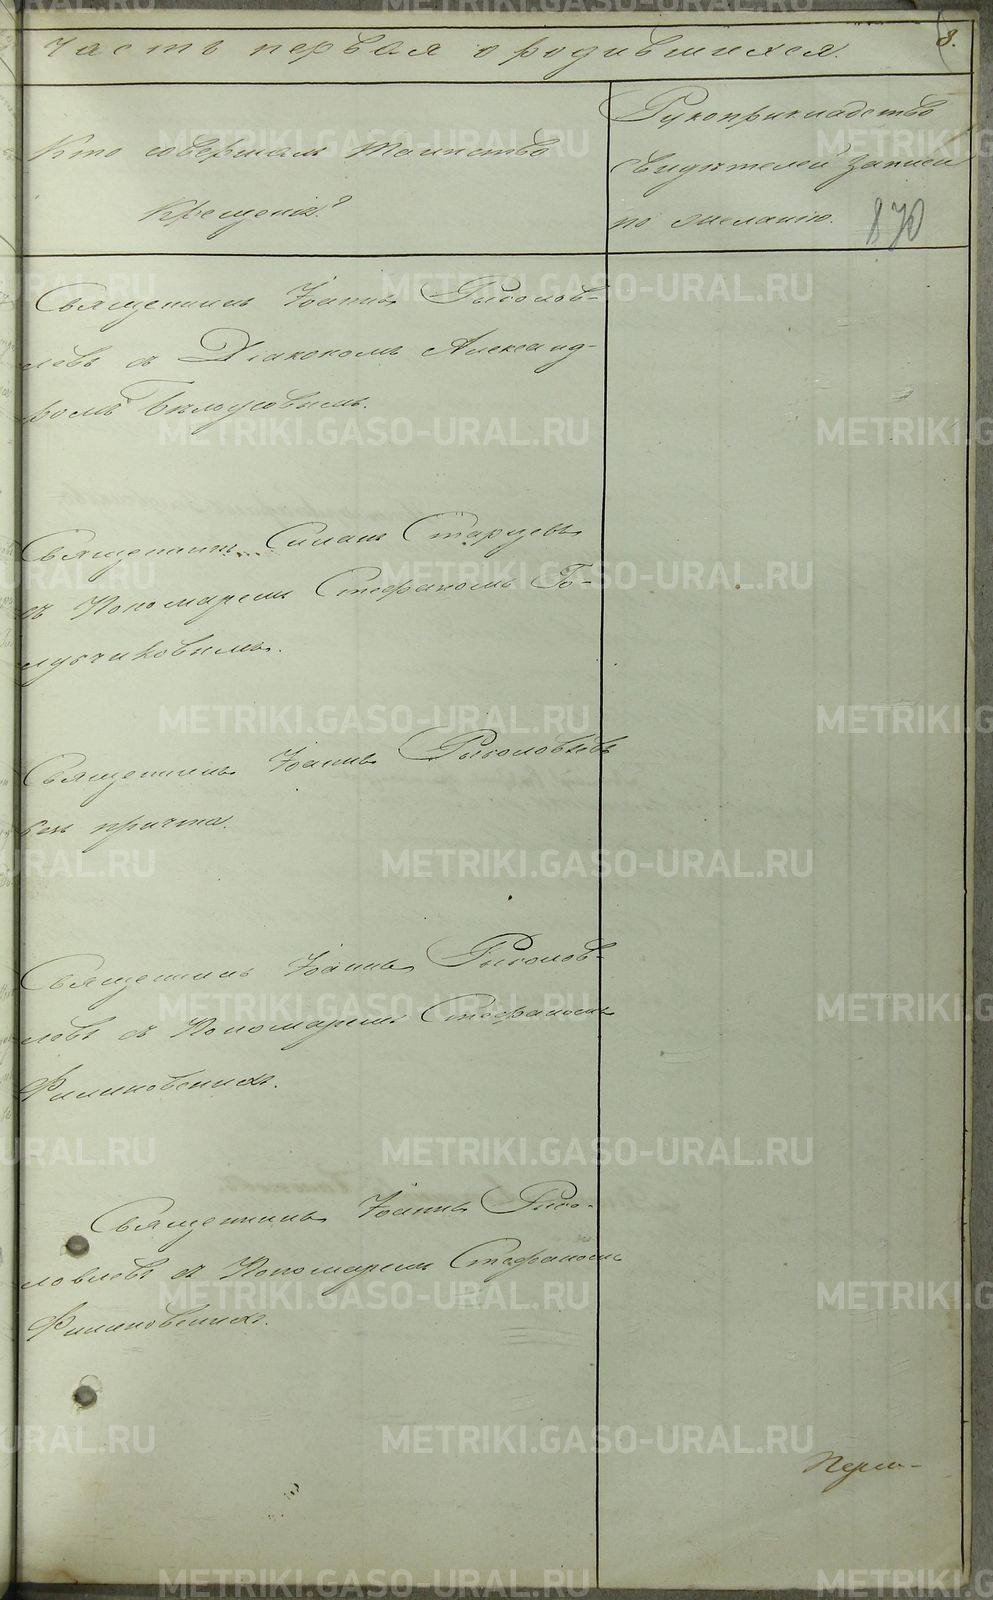 Часть первая о родившихся.
8.
Кто совершалъ таинство
Крещенія?
Рукоприкладство
свидѣтелей записи
по желанію.
870
Священникъ Іоаннъ Рыболов-
левъ съ Діакономъ Александ-
ромъ Бѣлоусовымъ.
Священникъ Силанъ Старцевъ
съ Пономаремъ Стефаномъ Го-
лубчиковымъ.
Священникъ Іоаннъ Рыболовлевъ
безъ причта.
Священникъ Іоаннъ Рыболов-
левъ съ Пономаремъ Стефаномъ
Филиповскихъ.
Священникъ Іоаннъ Рыбо-
ловлевъ съ Пономаремъ Стефаномъ
Филиповскихъ.
METRIKI.GASO-URAL.RU